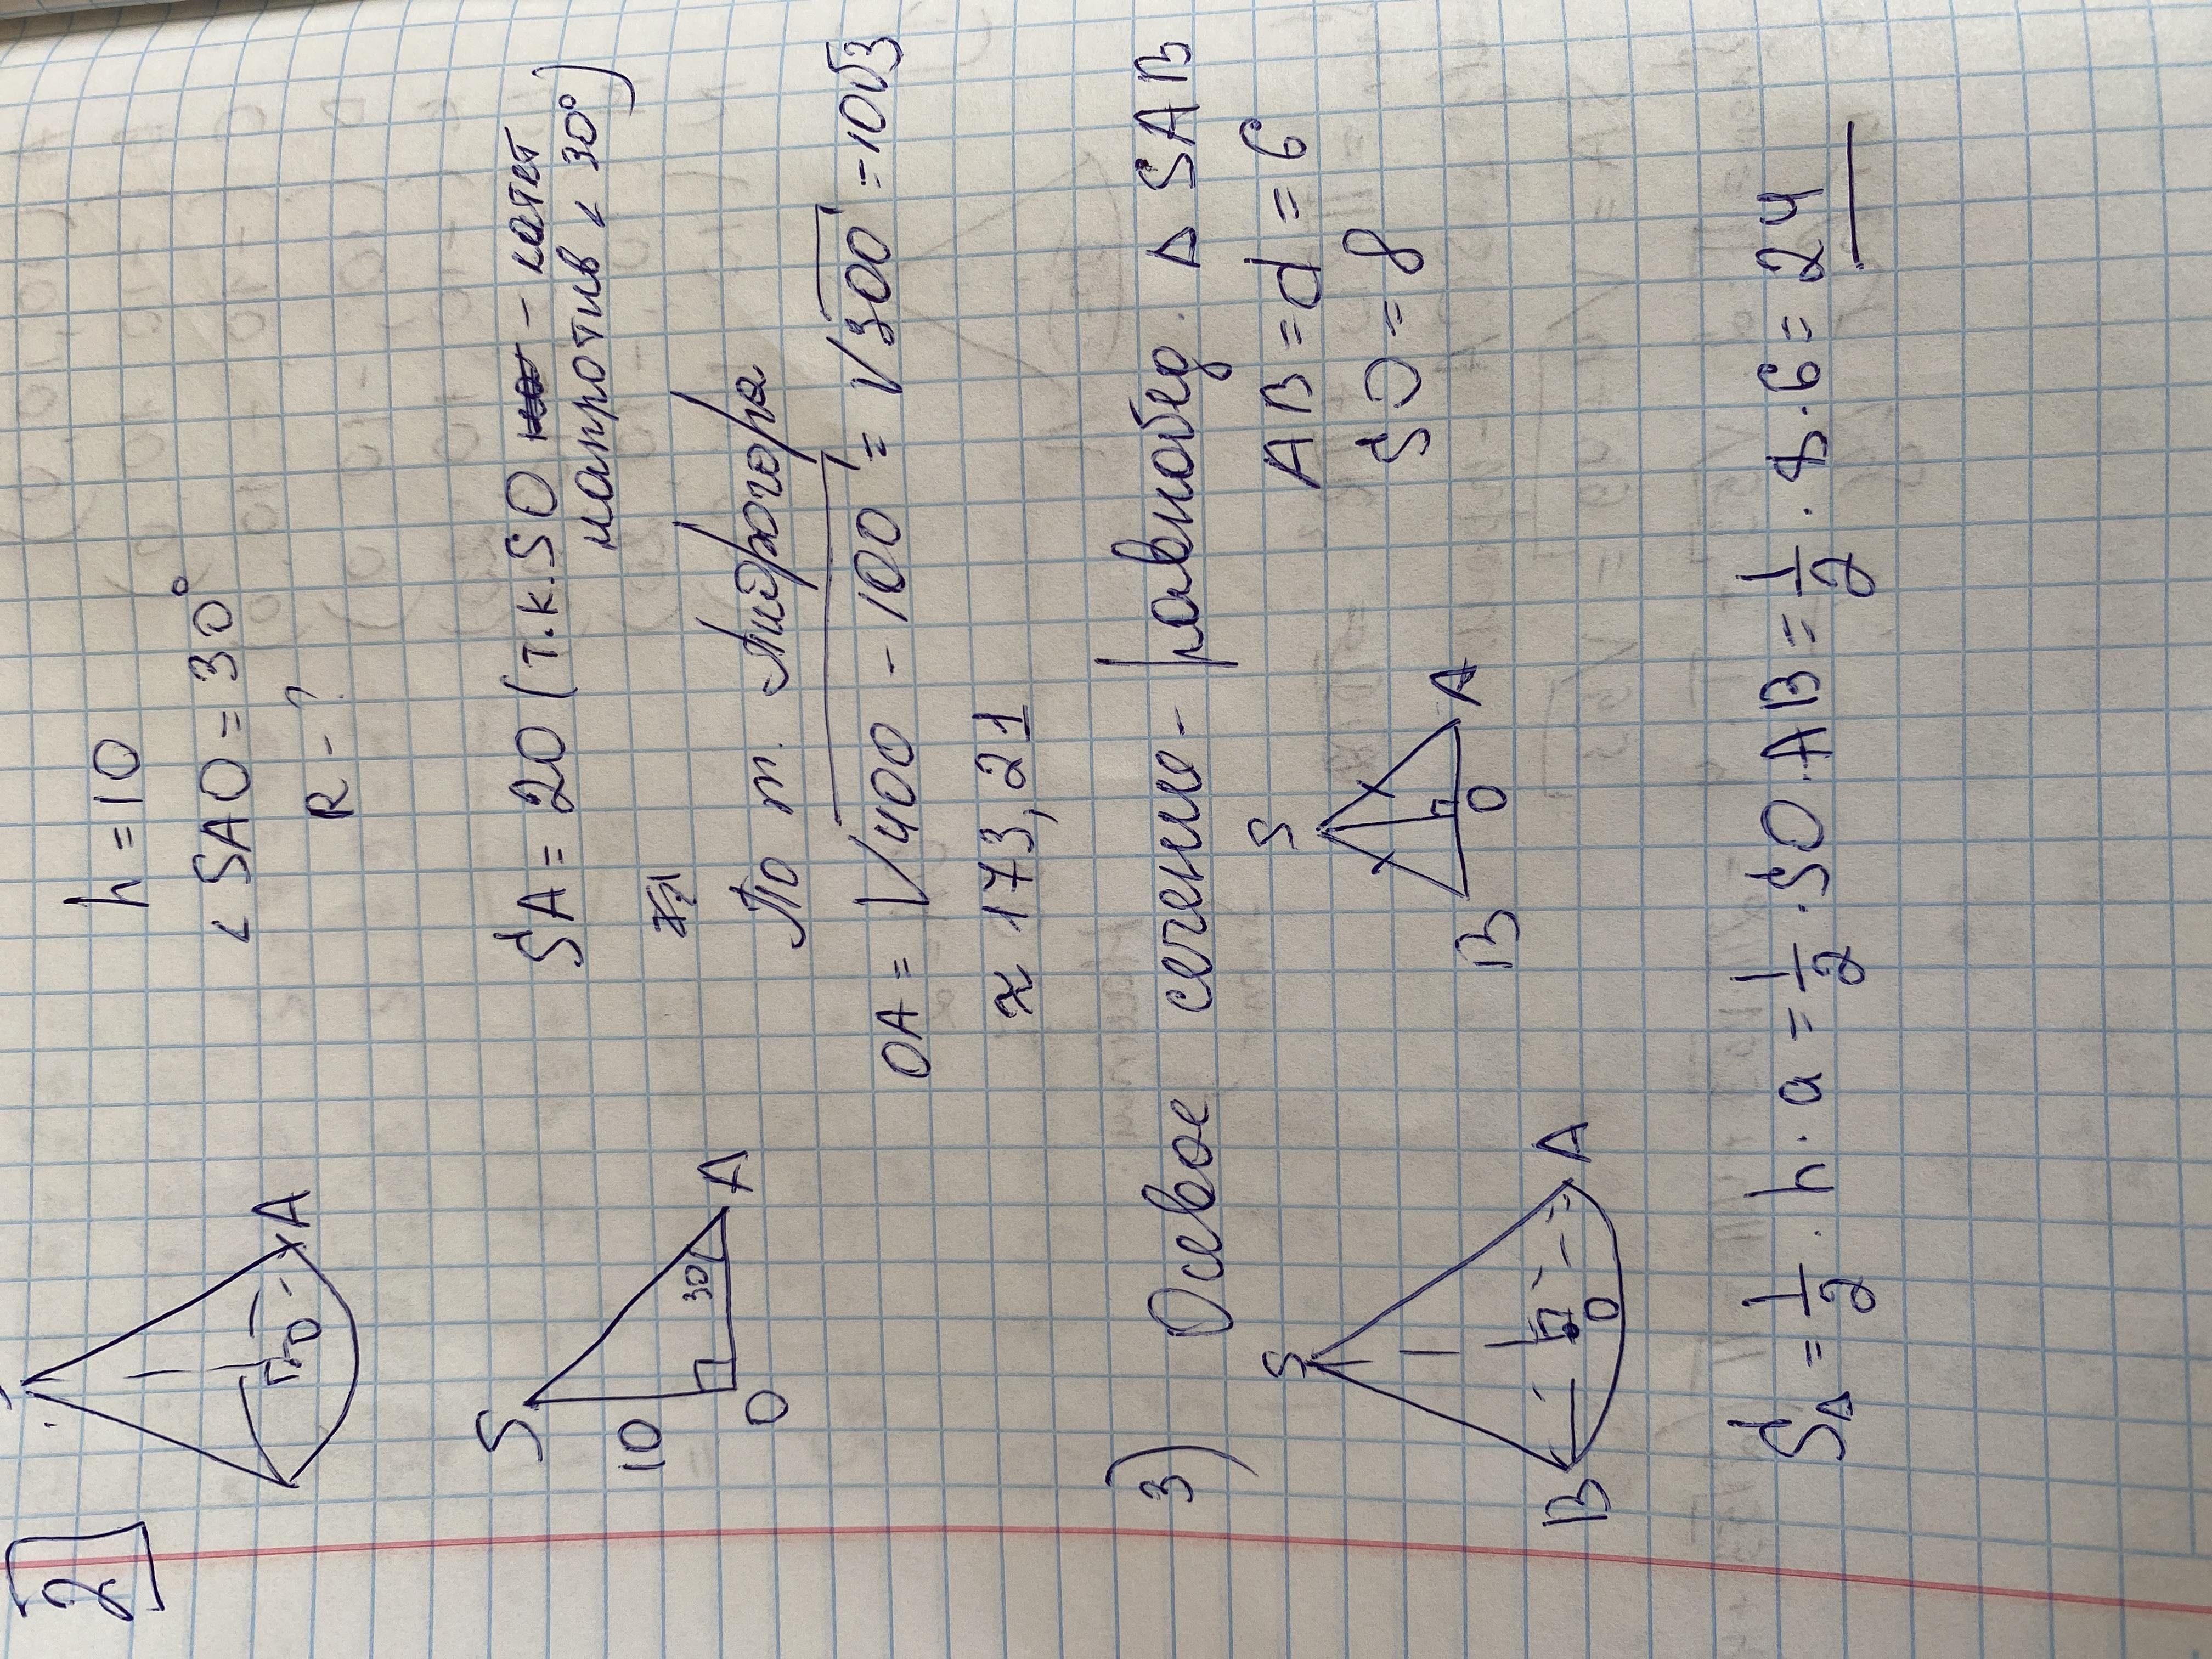 2
h = 10
< SAO = 30°
R - ?
A
O
S
10
30
O
A
SA = 20 (т.к. SO - катет
напротив < 30°)
По т. Пифагора
OA = √400 - 100 = √300 = 10√3
≈ 173,21
3) Осевое сечение - равнобед. △ SAB
S
B
O
A
S
B
O
A
AB = d = 6
SO = 8
S△ = 1/2 · h · a = 1/2 · SO · AB = 1/2 · 8 · 6 = 24